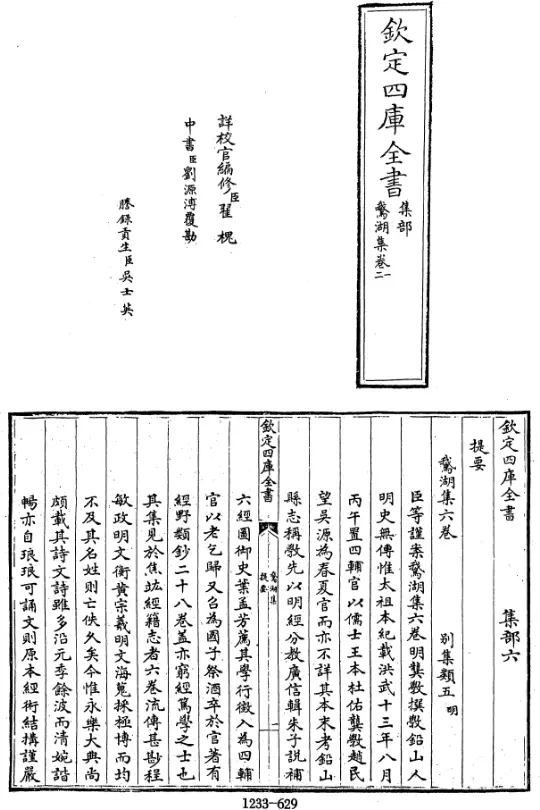 欽定四庫全書
集部
鵞湖集卷一二
詳校官編修臣翟槐
中書臣劉源溥覆勘
謄錄貢生臣吳士英
欽定四庫全書 集部六
提要 別集類五 明
鵞湖集六卷
臣等謹案鵞湖集六卷明龔斆撰斆鉛山人
明史無傳惟太祖本紀載洪武十三年八月
丙午置四輔官以儒士王本杜佑龔斆趙民
望吳源為春夏官而亦不詳其本末考鉛山
縣志稱斆先以明經分教廣信輯朱子說補
欽定四庫全書
鵞湖集
提要
一
六經圖御史葉孟芳薦其學行徵入為四輔
官以老乞歸又召為國子祭酒卒於官著有
經野類鈔二十八卷蓋亦窮經篤學之士也
其集見於焦竑經籍志者六卷流傳甚尠程
敏政明文衡黃宗羲明文海蒐採極博而均
不及其名姓則亡佚久矣今惟永樂大典尚
頗載其詩文詩雖多沿元季餘波而清婉諧
暢亦自琅琅可誦文則原本經術結構謹嚴
1233-629